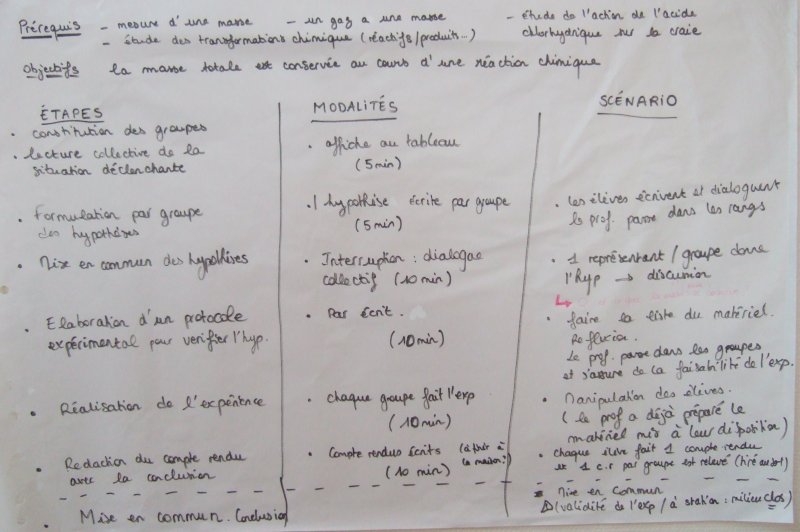 Prérequis - mesure d'une masse - un gaz a une masse - étude de l'action de l'acide
- étude des transformations chimique (réactifs/produits...) chlorhydrique sur la craie
Objectifs la masse totale est conservée au cours d'une réaction chimique
ÉTAPES
• constitution des groupes
• lecture collective de la
situation déclenchante
• Formulation par groupe
des hypothèses
• Mise en commun des hypothèses
• Elaboration d'un protocole
expérimental pour verifier l'hyp.
• Réalisation de l'expérience
• Redaction du compte rendu
avec la conclusion
• Mise en commun. Conclusion
MODALITÉS
• affiche au tableau
(5 min)
• 1 hypothèse écrite par groupe
(5 min)
• Interruption : dialogue
collectif (10 min)
• Par écrit.
(10 min)
• Chaque groupe fait l'exp
(10 min)
• Compte rendus écrits (à finir à
(10 min) la maison?)
SCÉNARIO
• les élèves écrivent et dialoguent
le prof. passe dans les rangs
• 1 représentant / groupe donne
l'hyp → discussion
• faire la liste du matériel.
Réflexion.
Le prof. passe dans les groupes
et s'assure de la faisabilité de l'exp.
• Manipulation des élèves.
(le prof a déjà préparé le
matériel mis à leur disposition)
• chaque élève fait 1 compte rendu
et 1 c.r par groupe est relevé (tiré au sort)
• Mise en commun
(validité de l'exp / à station : milieu clos)